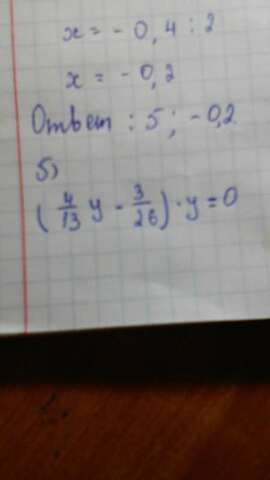 x = - 0,4 : 2
x = - 0,2
Ответ : 5 ; -0,2
5)
(4/13 y - 3/26) · y = 0